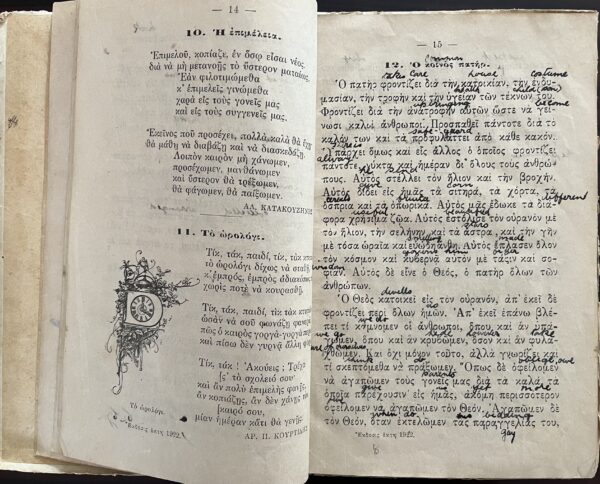 — 14 —
10. Ἡ ἐπιμέλεια.
Ἐπιμελοῦ, κοπίαζε, ἐν ὅσῳ εἶσαι νέος,
διὰ νὰ μὴ μετανοῇς τὸ ὕστερον ματαίως.
Ἐὰν φιλοτιμώμεθα
κ' ἐπιμελεῖς γινώμεθα
χαρὰ εἰς τοὺς γονεῖς μας
καὶ εἰς τοὺς συγγενεῖς μας.
Ἐκεῖνος ποῦ προσέχει, πολλὰ καλὰ θὰ ἔχῃ
θὰ μάθῃ νὰ διαβάζῃ καὶ νὰ διασκεδάζῃ.
Λοιπὸν καιρὸν μὴ χάνωμεν,
προσέχωμεν, μανθάνωμεν
καὶ ὕστερον θὰ τρέξωμεν,
θὰ φάγωμεν, θὰ παίξωμεν.
ΑΛ. ΚΑΤΑΚΟΥΖΗΝΟΣ
11. Τὸ ὡρολόγι.
Τίκ, τάκ, παιδί, τίκ, τὰκ
τὸ ὡρολόγι δίχως νὰ
κ' ἐμπρός, ἐμπρὸς
χωρὶς ποτὲ νὰ κουρασθῇ.
Τίκ, τάκ, παιδί, τίκ τὰκ
ὡσὰν νὰ σοῦ φωνάζῃ
πῶς ὁ καιρὸς γοργὰ-γοργὰ
καὶ πίσω δὲν γυρνᾷ ἄλλη
Τίκ, τάκ! Ἀκούεις;
'ς τὸ σχολεῖό σου
κι' ἂν πολὺ ἐπιμελὴς
ἂν κοπιάζῃς, ἂν δὲν χάνῃς
καιρό σου,
μίαν ἡμέραν κάτι θὰ γενῇς.
ΑΡ. Π. ΚΟΥΡΤΙΔΗΣ
Τὸ ὡρολόγι.
Ἔκδοσις ἕκτη 1922.
— 15 —
common
12. Ὁ κοινὸς πατήρ.
takes care house costume
Ὁ πατὴρ φροντίζει διὰ τὴν κατοικίαν, τὴν ἐνδυ-
health
μασίαν, τὴν τροφὴν καὶ τὴν ὑγείαν τῶν τέκνων του.
upbringing become
Φροντίζει διὰ τὴν ἀνατροφὴν αὐτῶν ὥστε νὰ γεί-
νωσι καλοὶ ἄνθρωποι. Προσπαθεῖ πάντοτε διὰ τὸ
safe-guard
καλόν των καὶ τὰ προφυλάττει ἀπὸ κάθε κακόν.
Ὑπάρχει ὅμως καὶ εἷς ἄλλος ὁ ὁποῖος φροντίζει
always
πάντοτε, νύκτα καὶ ἡμέραν δι' ὅλους τοὺς ἀνθρώ-
πους. Αὐτὸς στέλλει τὸν ἥλιον καὶ τὴν βροχήν.
give corn
Αὐτὸς δίδει εἰς ἡμᾶς τὰ σιτηρά, τὰ χόρτα, τὰ
different
ὄσπρια καὶ τὰ ὀπωρικά. Αὐτὸς μᾶς ἔδωκε τὰ διά-
useful
φορα χρήσιμα ζῷα. Αὐτὸς ἐστόλισε τὸν οὐρανὸν μὲ
stars
τὸν ἥλιον, τὴν σελήνην καὶ τὰ ἄστρα, καὶ τὴν γῆν
μὲ τόσα ὡραῖα καὶ εὐώδη ἄνθη. Αὐτὸς ἔπλασεν ὅλον
τὸν κόσμον καὶ κυβερνᾷ αὐτὸν μὲ τάξιν καὶ σο-
wisdom
φίαν. Αὐτὸς δὲ εἶνε ὁ Θεός, ὁ πατὴρ ὅλων τῶν
ἀνθρώπων.
dwells
Ὁ Θεὸς κατοικεῖ εἰς τὸν οὐρανόν, ἀπ' ἐκεῖ δὲ
φροντίζει περὶ ὅλων ἡμῶν. Ἀπ' ἐκεῖ ἐπάνω βλέ-
we do
πει τί κάμνομεν οἱ ἄνθρωποι, ὅπου καὶ ἂν ὑπά-
we go
γωμεν, ὅπου καὶ ἂν κρυβῶμεν, ὅσον καὶ ἂν φυλα-
χθῶμεν. Καὶ ὄχι μόνον τοῦτο, ἀλλὰ γνωρίζει καὶ
think do
τί σκεπτόμεθα νὰ πράξωμεν. Ὅπως δὲ ὀφείλομεν
parents
νὰ ἀγαπῶμεν τοὺς γονεῖς μας διὰ τὰ καλά, τὰ
give us more
ὁποῖα παρέχουσιν εἰς ἡμᾶς, ἀκόμη περισσότερον
ὀφείλομεν νὰ ἀγαπῶμεν τὸν Θεόν. Ἀγαπῶμεν δὲ
when do his bidding
τὸν Θεόν, ὅταν ἐκτελῶμεν τὰς παραγγελίας του,
Ἔκδοσις ἕκτη 1922.